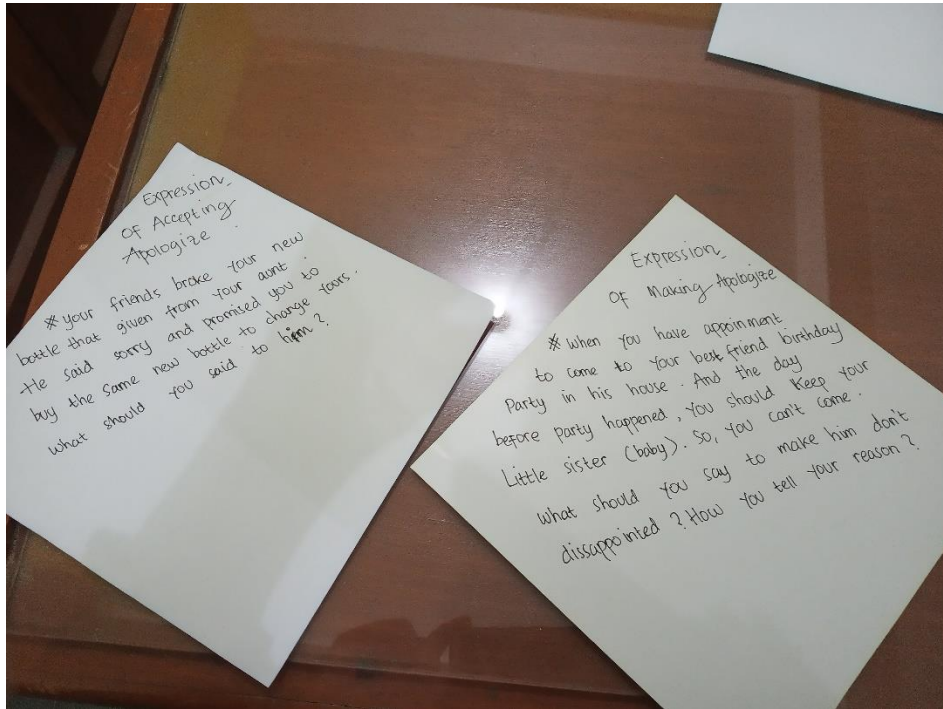 Expression
Of Accepting
Apologize
* Your friends broke your new
bottle that given from your aunt.
He said sorry and promised you to
buy the same new bottle to change yours.
what should you said to him?
Expression
Of Making Apologize
* When you have appoinment
to come to your best friend birthday
Party in his house. And the day
before party happened, You should keep your
Little sister (baby). So, you can't come.
what should you say to make him don't
dissappointed? How you tell your reason?